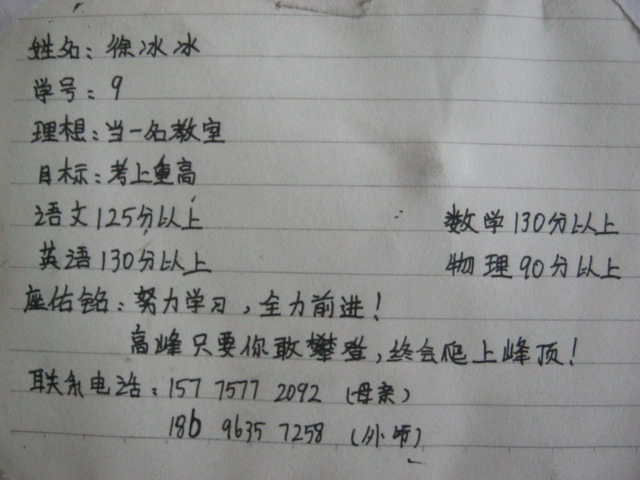 姓名：徐冰冰
学号：9
理想：当一名教室
目标：考上重高
语文125分以上 数学130分以上
英语130分以上 物理90分以上
座佑铭：努力学习，全力前进！
高峰只要你敢攀登，终会爬上峰顶！
联系电话：157 7577 2092（母亲）
186 9635 7258（外婆）